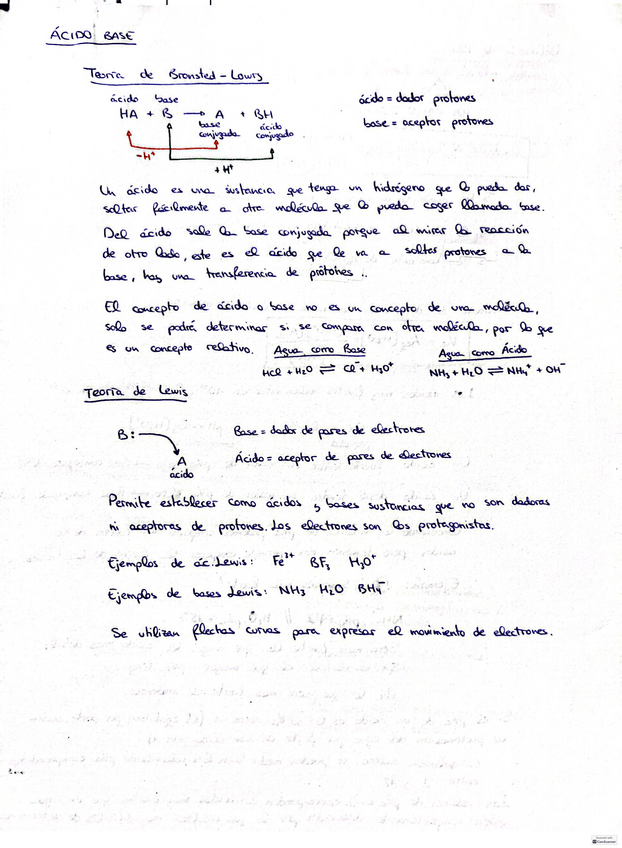 ÁCIDO BASE
Teoría de Bronsted-Lowry
ácido base
HA + B → A + BH
base conjugada
ácido conjugado
-H⁺
+H⁺
ácido = dador protones
base = aceptor protones
Un ácido es una sustancia que tenga un hidrógeno que lo pueda dar,
soltar fácilmente a otra molécula que lo pueda coger llamada base.
Del ácido sale la base conjugada porque al mirar la reacción
de otro lado, este es el ácido que le va a soltar protones a la
base, hay una transferencia de protones..
El concepto de ácido o base no es un concepto de una molécula,
solo se podrá determinar si se compara con otra molécula, por lo que
es un concepto relativo.
Agua como Base
HCl + H₂O ⇌ Cl⁻ + H₃O⁺
Agua como Ácido
NH₃ + H₂O ⇌ NH₄⁺ + OH⁻
Teoría de Lewis
B:
A
ácido
Base = dador de pares de electrones
Ácido = aceptor de pares de electrones
Permite establecer como ácidos y bases sustancias que no son dadoras
ni aceptoras de protones. Los electrones son los protagonistas.
Ejemplos de ác. Lewis: Fe³⁺ BF₃ H₃O⁺
Ejemplos de bases Lewis: NH₃ H₂O BH₄⁻
Se utilizan flechas curvas para expresar el movimiento de electrones.
CamScanner